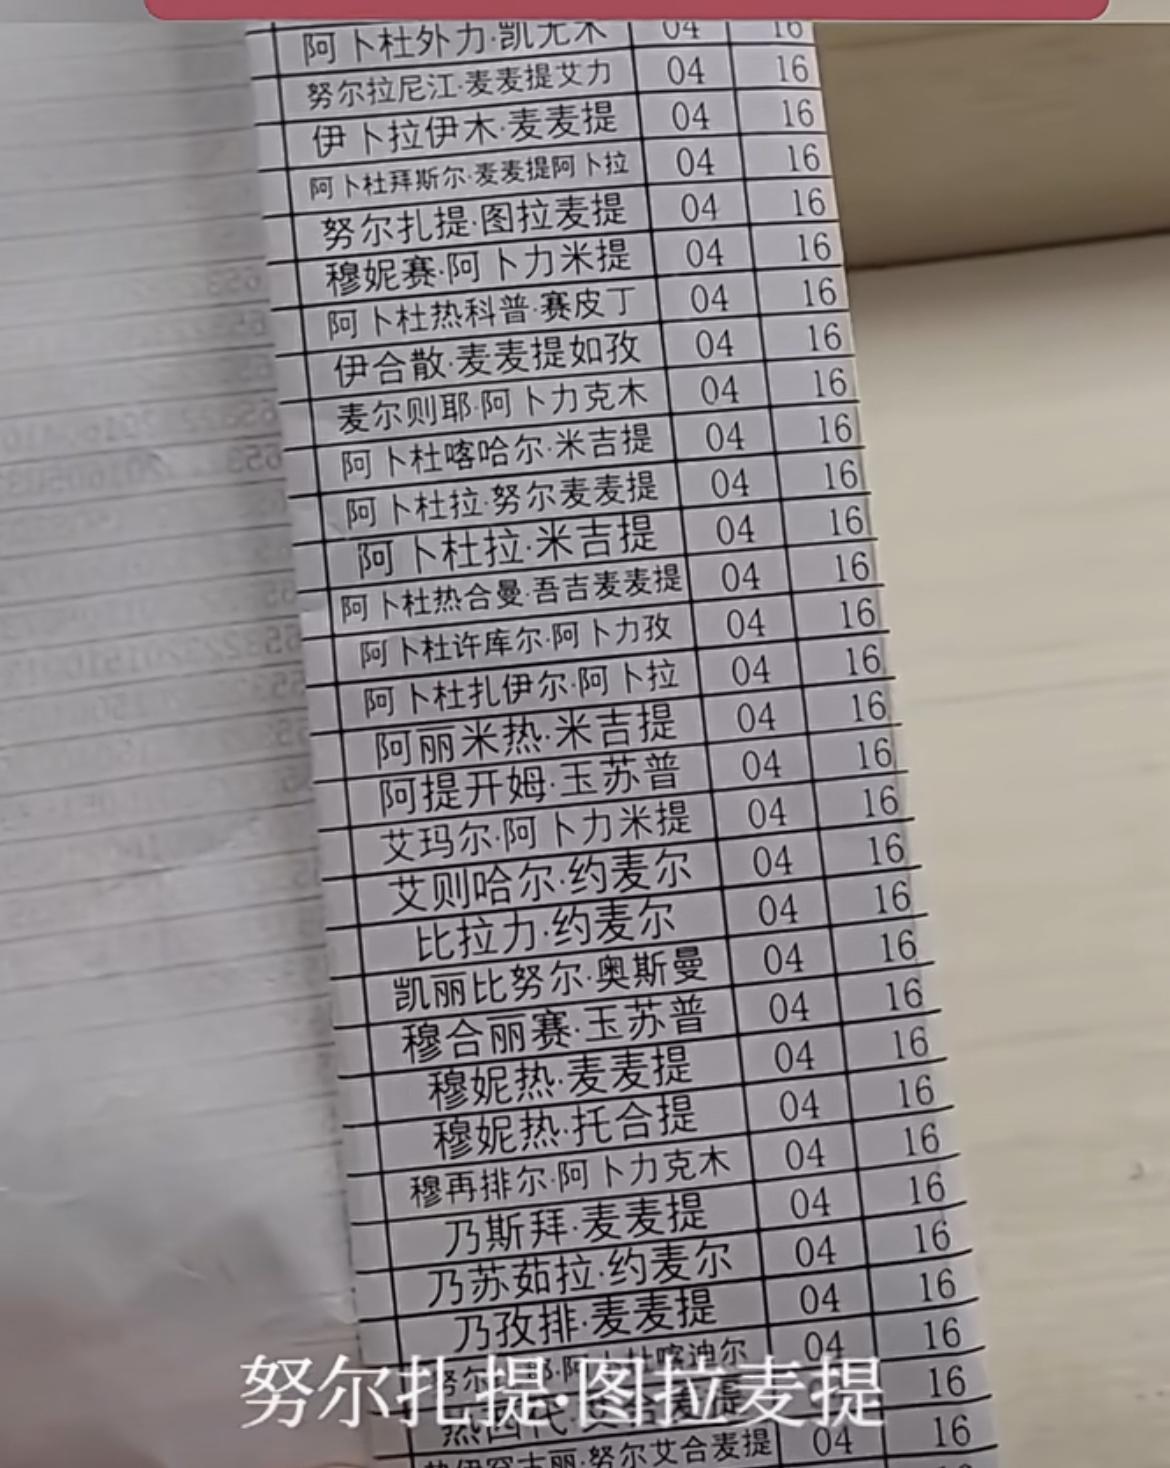 阿卜杜外力·凯尤木 04 16
努尔拉尼江·麦麦提艾力 04 16
伊卜拉伊木·麦麦提 04 16
阿卜杜拜斯尔·麦麦提阿卜拉 04 16
努尔扎提·图拉麦提 04 16
穆妮赛·阿卜力米提 04 16
阿卜杜热科普·赛皮丁 04 16
伊合散·麦麦提如孜 04 16
麦尔则耶·阿卜力克木 04 16
阿卜杜喀哈尔·米吉提 04 16
阿卜杜拉·努尔麦麦提 04 16
阿卜杜拉·米吉提 04 16
阿卜杜热合曼·吾吉麦麦提 04 16
阿卜杜许库尔·阿卜力孜 04 16
阿卜杜扎伊尔·阿卜拉 04 16
阿丽米热·米吉提 04 16
阿提开姆·玉苏普 04 16
艾玛尔·阿卜力米提 04 16
艾则哈尔·约麦尔 04 16
比拉力·约麦尔 04 16
凯丽比努尔·奥斯曼 04 16
穆合丽赛·玉苏普 04 16
穆妮热·麦麦提 04 16
穆妮热·托合提 04 16
穆再排尔·阿卜力克木 04 16
乃斯拜·麦麦提 04 16
乃苏茹拉·约麦尔 04 16
乃孜排·麦麦提 04 16
阿卜杜喀迪尔 04 16
16
努尔艾合麦提 04 16
努尔扎提·图拉麦提